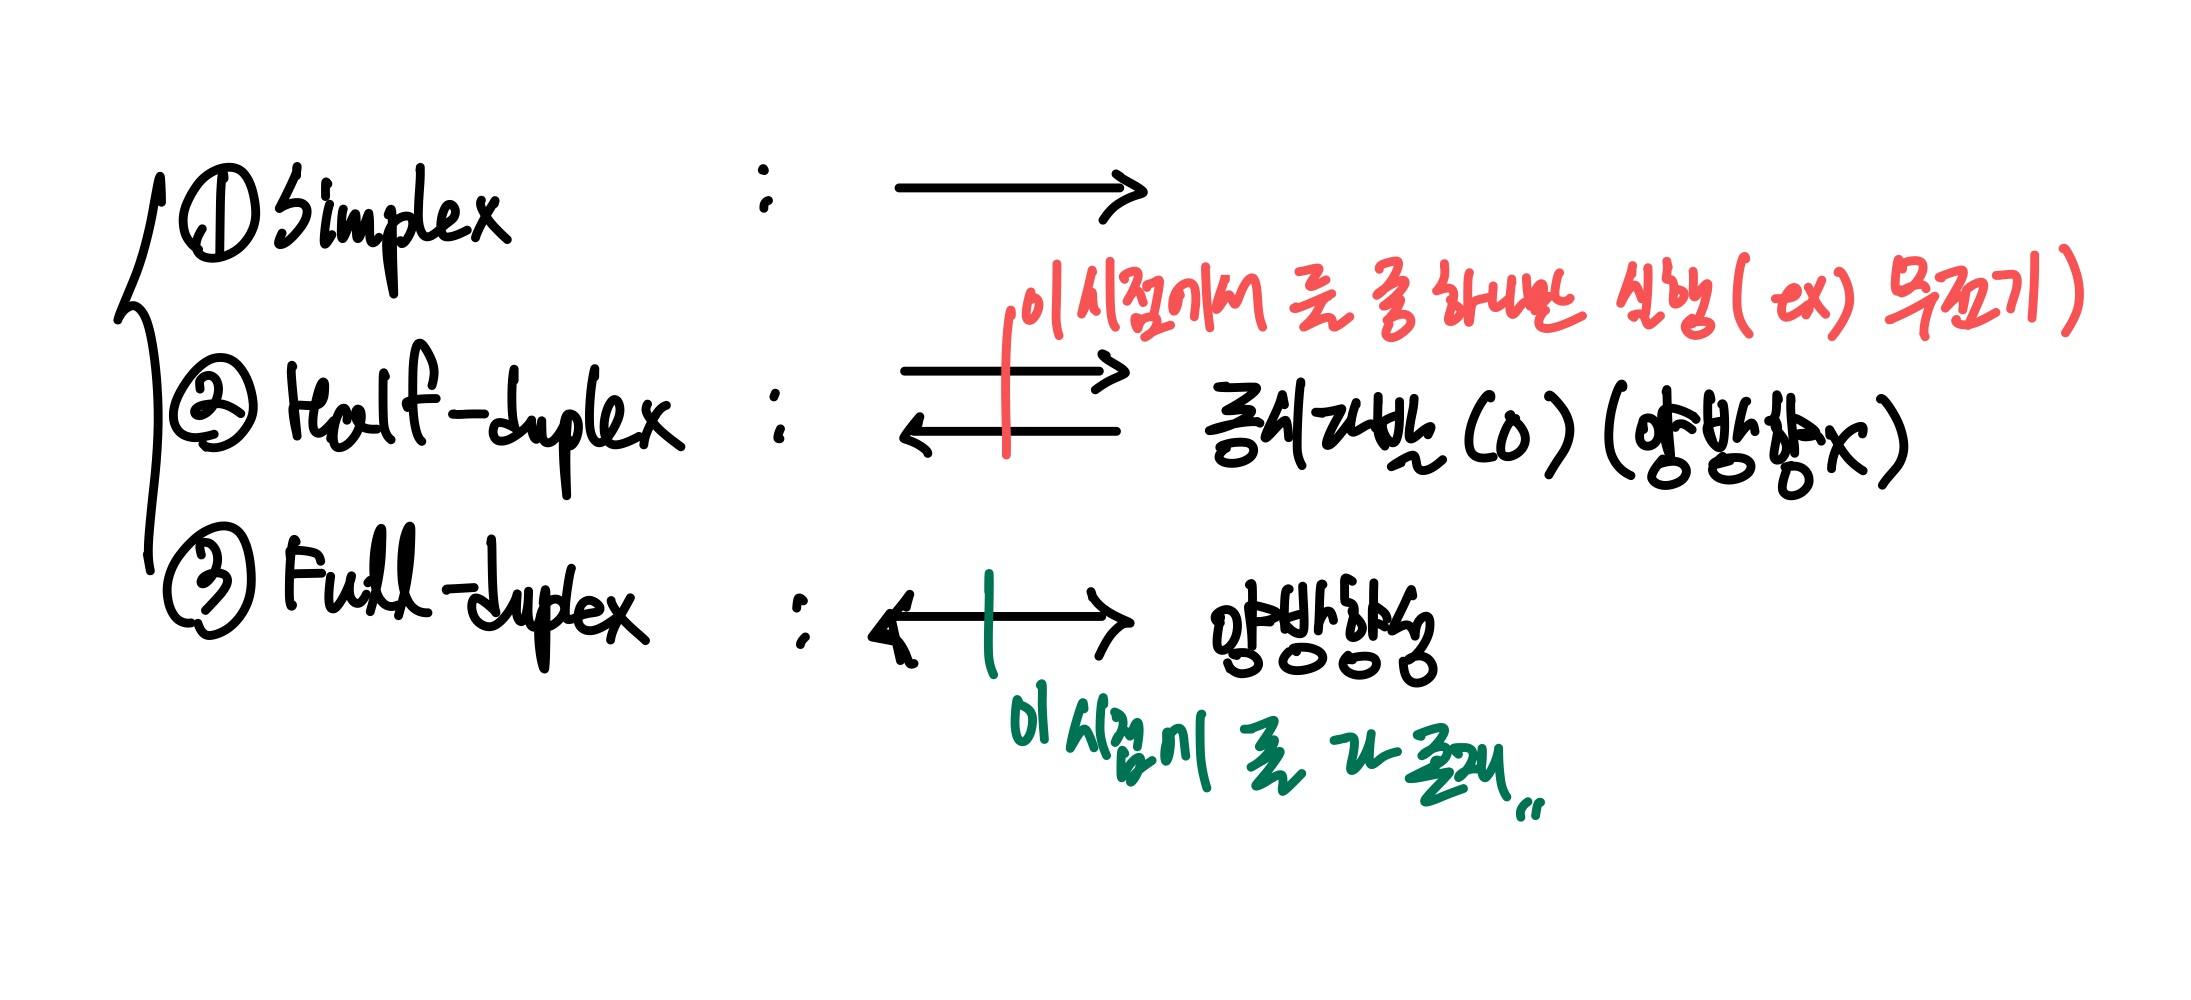 ① Simplex :
이 시점에서 둘 중 하나만 실행 (ex) 무전기)
② Half-duplex : 동시개발 (O) (양방향X)
③ Full-duplex : 양방향성
이 시점에 둘 다 존재